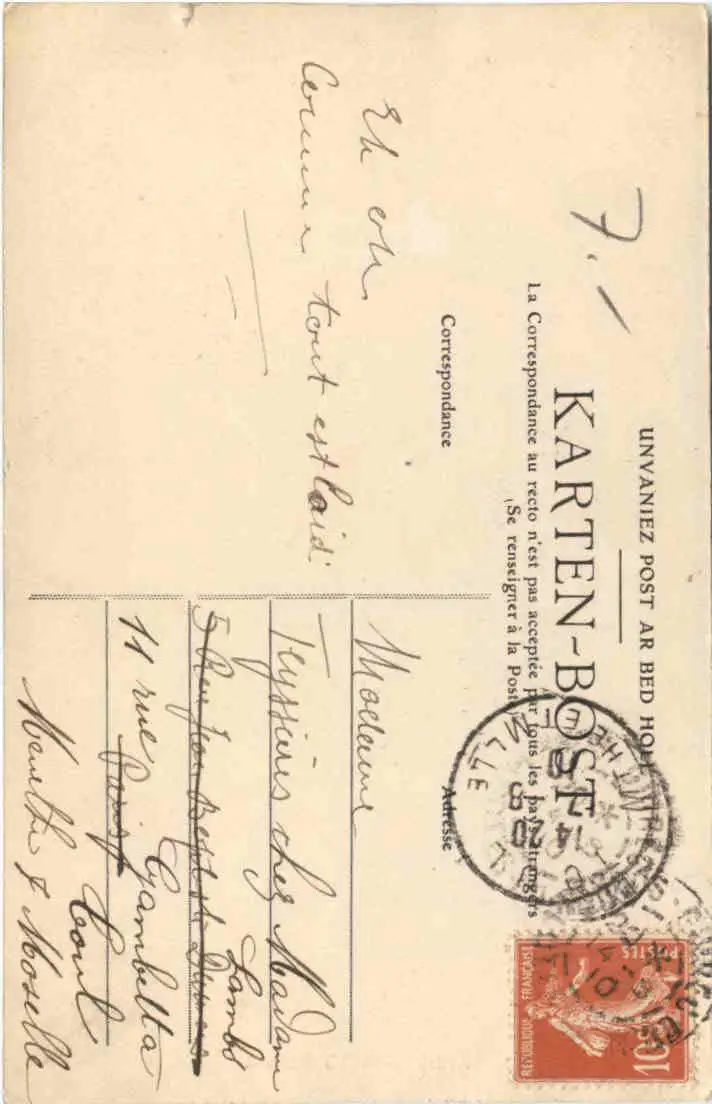 UNVANIEZ POST AR BED HOLL
KARTEN-BOST
La Correspondance au recto n'est pas acceptée par tous les pays étrangers
(Se renseigner à la Poste)
Correspondance
Adresse
7.
Eh oh
Comme tout est laid
Madame
Teyssières chez Madame
Lambs
5 Rue
11 rue Gambetta
Paris
Toul
Meurthe & Moselle
REPUBLIQUE FRANÇAISE
POSTES
10c